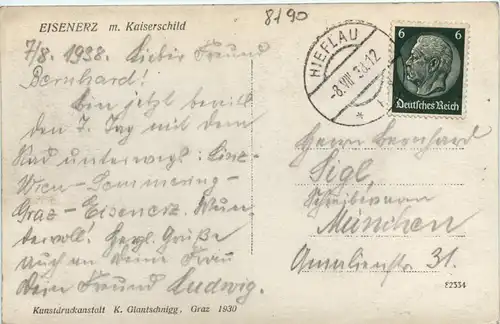 EISENERZ m. Kaiserschild
8490
7/8. 1938. Lieber Freund
Bernhard!
Bin jetzt bereits
den 7. Tag mit dem
Rad unterwegs: Linz-
Wien-Semmering-
Graz-Eisenerz. Wun-
dervoll! Herzl. Grüße
auch an Deine Frau
Dein Freund Ludwig.
Kunstdruckanstalt K. Glantschnigg, Graz 1930
HIEFLAU
-8.VIII 38.12
6 6
Deutsches Reich
Herrn Bernhard
Sigl,
München
31.
F2334